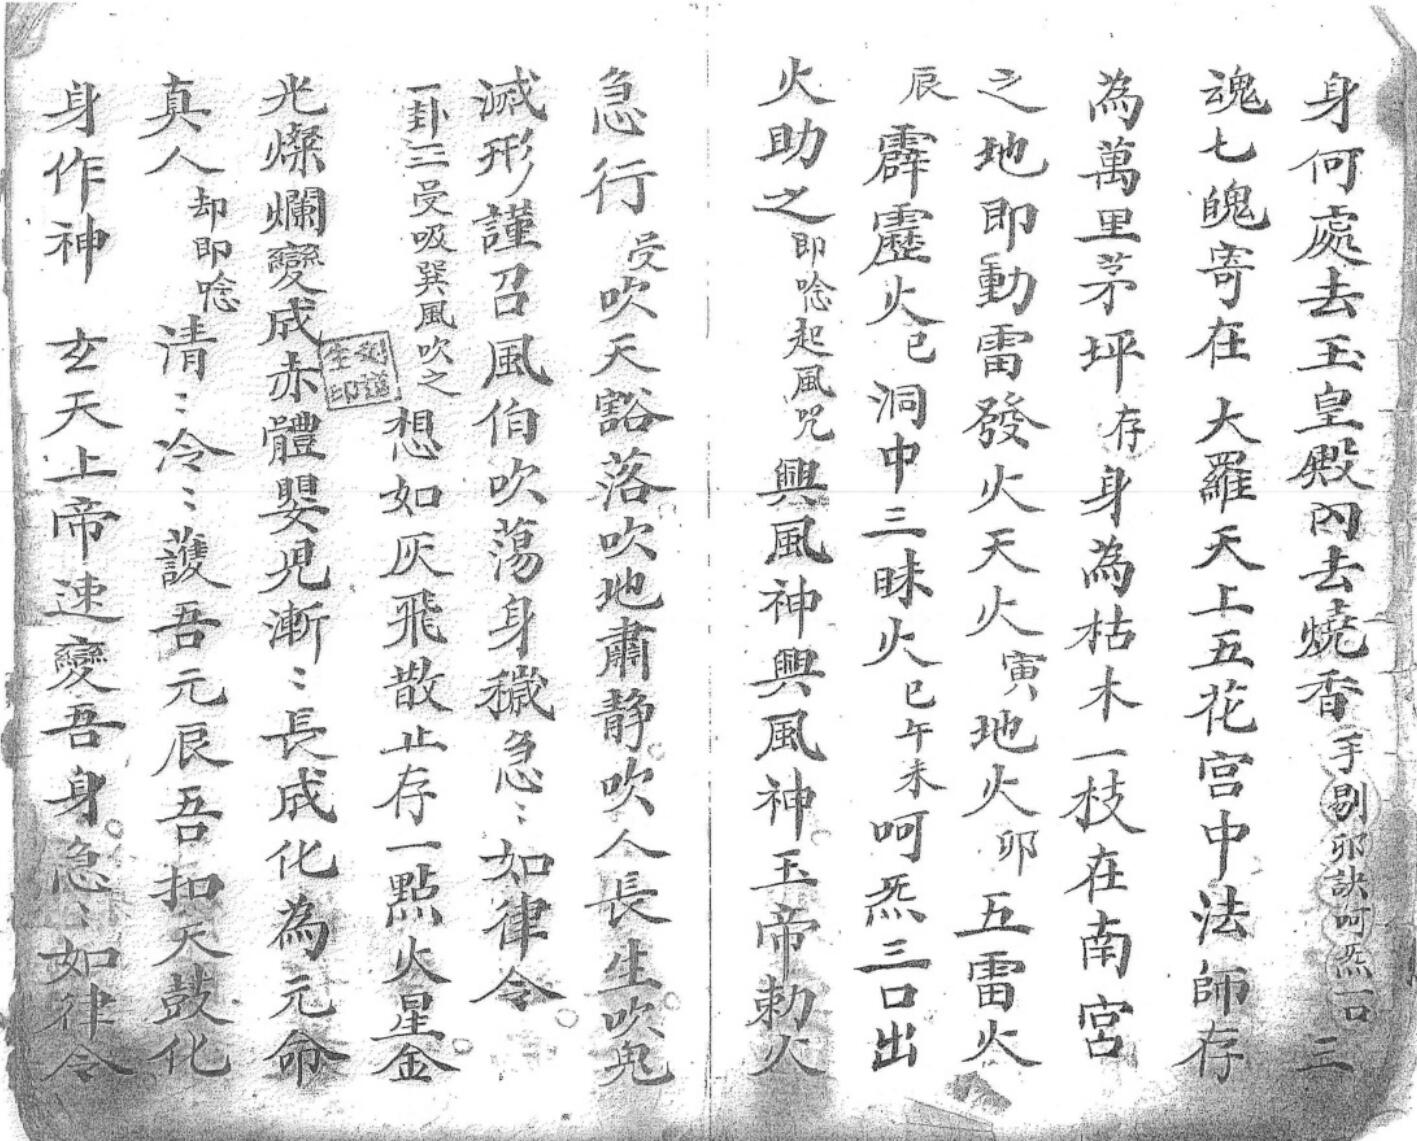 身何處去玉皇殿內去燒香手剔卯訣呵炁一口三
魂七魄寄在大羅天上五花宮中法師存
為萬里茅坪存身為枯木一枝在南宮
之地即動雷發火天火寅地火卯五雷火
辰霹靂火巳洞中三昧火巳午未呵炁三口出
火助之即唸起風咒興風神興風神玉帝勅火
急行受吹天豁落吹地肅静吹人長生吹鬼
滅形謹召風伯吹蕩身穢急〻如律令
一卦三受吸巽風吹之想如灰飛散止存一點火星金
光燦爛變成赤體嬰児漸〻長成化為元命
真人却即唸清〻冷〻護吾元辰吾扣天鼓化
身作神 玄天上帝速變吾身急〻如律令